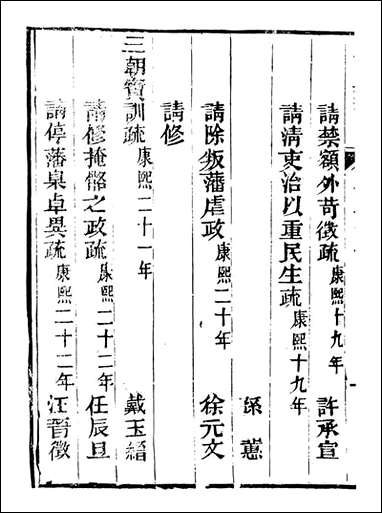 請禁額外苛徵疏 康熙十九年 許承宣
請清吏治以重民生疏 康熙十九年
孫蕙
請除叛藩虐政 康熙二十年 徐元文
請修
三朝寶訓疏 康熙二十一年 戴玉縉
請修掩骼之政疏 康熙二十二年 任辰旦
請停藩臬卓異疏 康熙二十二年 汪晉徵